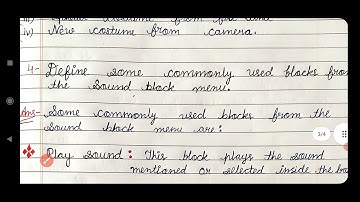 iv) New costume from camera.
4- Define some commonly used blocks from
the sound block menu.
Ans- Some commonly used blocks from the
sound block menu are:
Play sound: This block plays the sound
mentioned or selected inside the
3/4